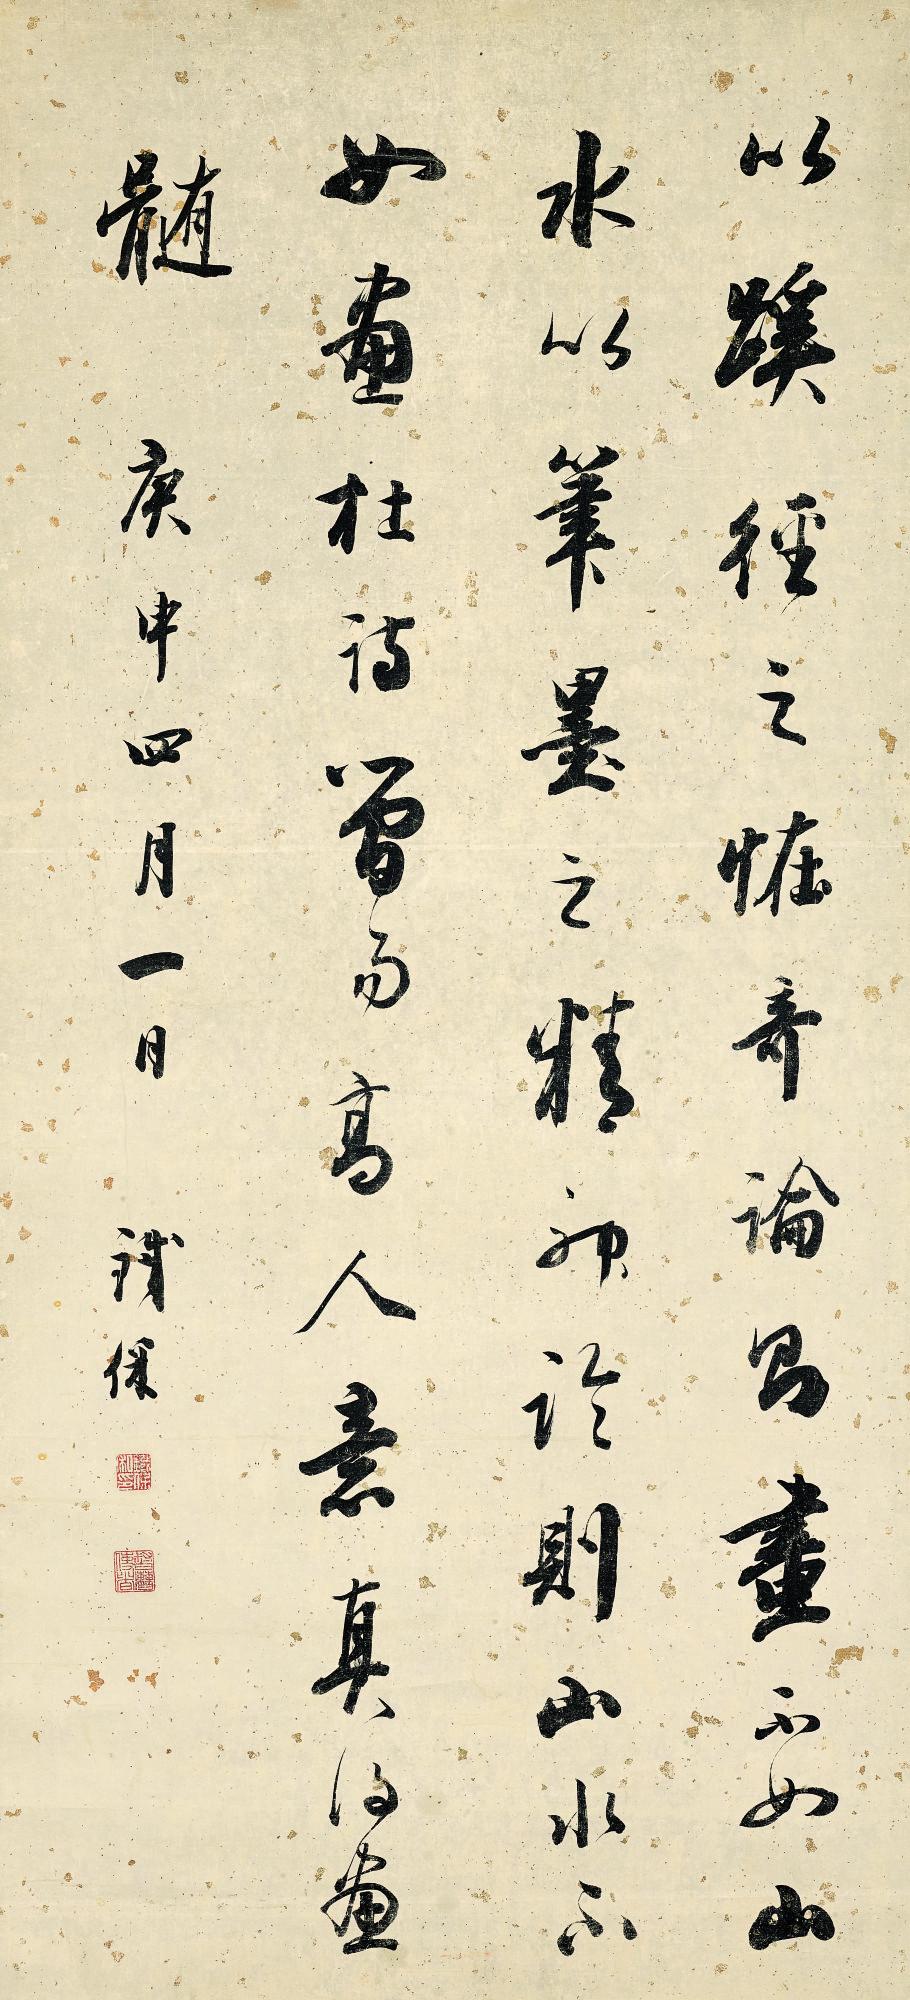 以蹊徑之怪奇論即畫不如山
水以筆墨之精神論則山水不
如畫杜詩曾為高人意真得畫
髓 庚申四月一日 鐵保